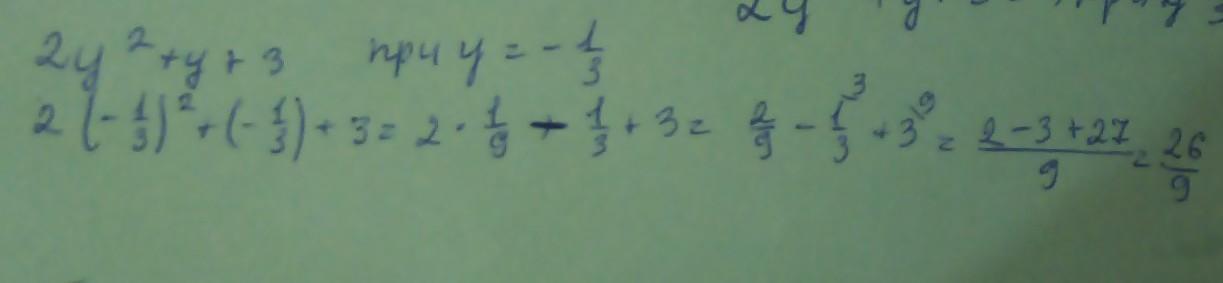 2y² + y + 3 при y = -1/3
2(-1/3)² + (-1/3) + 3 = 2 · 1/9 - 1/3 + 3 = 2/9 - 1/3^3 + 3^9 = (2 - 3 + 27)/9 = 26/9